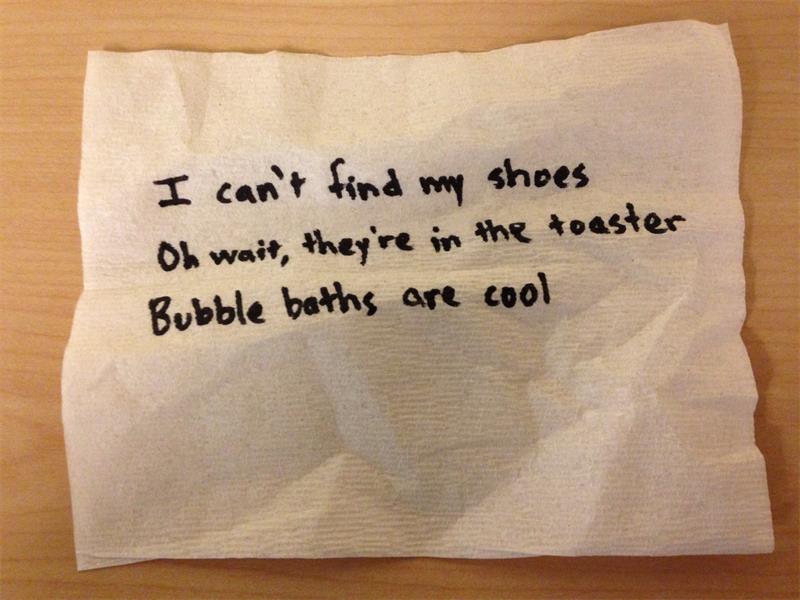 I can't find my shoes
Oh wait, they're in the toaster
Bubble baths are cool